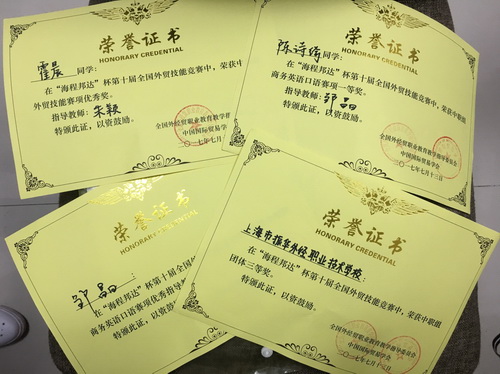 荣誉证书
HONORARY CREDENTIAL
霍晨 同学:
在“海程邦达”杯第十届全国外贸技能竞赛中,荣获中
外贸技能赛项优秀奖。
指导教师:
特颁此证,以资鼓励。
全国外经贸职业教育教学指
中国国际贸易学会
二〇一七年七月
荣誉证书
HONORARY CREDENTIAL
陈诗绮 同学:
在“海程邦达”杯第十届全国外贸技能竞赛中,荣获中职组
商务英语口语赛项一等奖。
指导教师:邹晶
特颁此证,以资鼓励。
全国外经贸职业教育教学指导委员会
中国国际贸易学会
二〇一七年七月十三日
荣誉证书
HONORARY CREDENTIAL
邹晶
在“海程邦达”杯第十届全国外贸技能竞
商务英语口语赛项优秀指导
特颁此证,以资鼓励。
荣誉证书
HONORARY CREDENTIAL
上海市振华外经职业技术学校:
在“海程邦达”杯第十届全国外贸技能竞赛中,荣获中职组
团体三等奖。
特颁此证,以资鼓励。
全国外经贸职业教育教学指导委员会
中国国际贸易学会
二〇一七年七月十三日